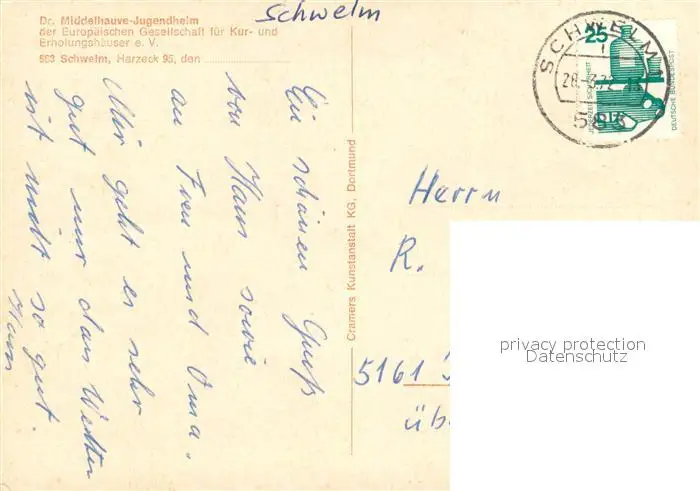 Dr. Middelhauve-Jugendheim
der Europäischen Gesellschaft für Kur- und
Erholungshäuser e. V.
583 Schwelm, Harzeck 95, den
Schwelm
Ein schönen Gruß
von Haus sowie
an und Oma.
Mir geht es sehr
gut nur das Wetter
ist nicht so gut.
Cramers Kunstanstalt KG, Dortmund
SCHWELM 1
28.-3.72
583
25
JEDERZEIT SICHERHEIT
DEUTSCHE BUNDESPOST
Herrn
R.
5161
üb
privacy protection
Datenschutz